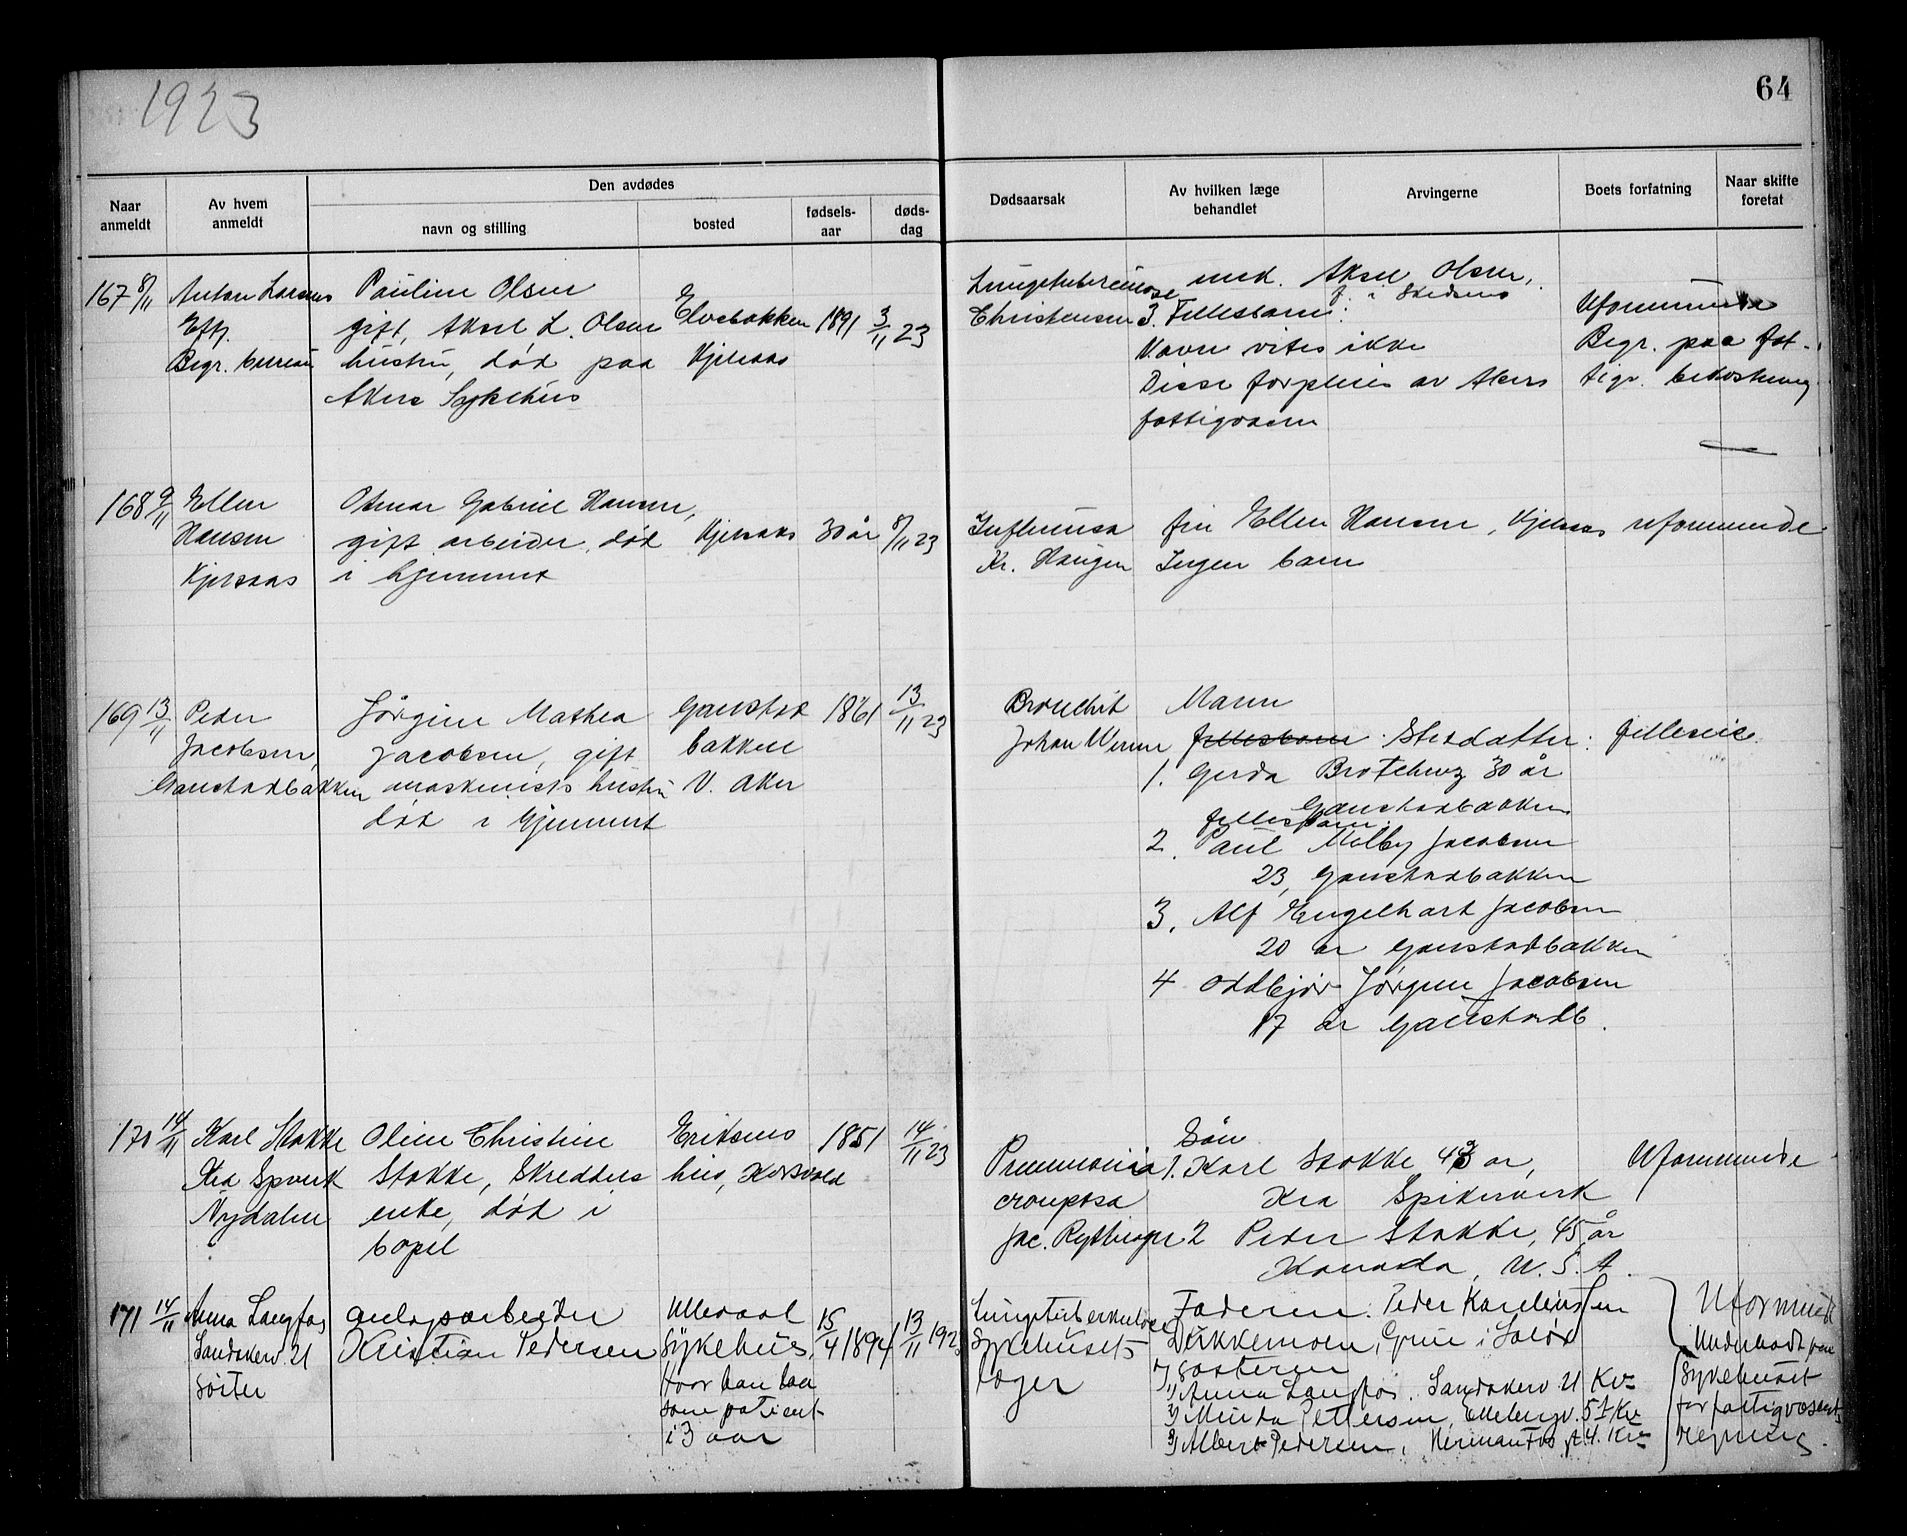 1923
64
Naar anmeldt
Av hvem anmeldt
Den avdødes
navn og stilling
bosted
fødsels-aar
døds-dag
Dødsaarsak
Av hvilken læge behandlet
Arvingerne
Boets forfatning
Naar skifte foretat
167 8/11
Anton Larsens
Eftf.
Begr. bureau
Pauline Olsen
gift, Aksel L. Olsen
hustru, død paa
Akers Sykehus
Elvebakken
Kjelsaas
1891
3/11 23
Lungetuberculose
Christensen
med. Aksel Olsen,
3. Fellesbarn:
Navn vites ikke
Disse forpleies av Akers
fattigvæsen
Uformuende
Begr. paa fat-
tigv. bekostning
168 9/11
Ellen
Hansen
Kjelsaas
Osmar Gabriel Hansen,
gift arbeider, død
i hjemmet
Kjelsaas
30 år
8/11 23
Influensa
Kr. Haugen
fru Ellen Hansen, Kjelsaas
Ingen barn
uformuende
169 13/11
Peder
Jacobsen,
Gaustadbakken
Jørgine Mathea
Jacobsen, gift
maskinists hustru
død i hjemmet
Gaustad
bakken
V. Aker
1861
13/11 23
Bronchit
Johan Werner
Mann
fellesbarn Steddatter:
1. Gerda Brotchuz 30 år
Gaustadbakken
fellesbarn:
2. Paul Milby Jacobsen
23, Gaustadbakken
3. Alf Engelhart Jacobsen
20 år Gaustadbakken
4 Oddbjør Jørgen Jacobsen
17 år Gaustadb.
felleseie
170 14/11
Karl Stokke
Kra Spverk
Nydalen
Oline Christine
Stokke, Skredders
enke, død i
bopel
Eriksens
hus, Korsvold
1851
14/11 23
Pneumonia
crouposa
Jac. Rytterager
Søn
1. Karl Stokke 43 år,
Kra Spikerverk
2 Peder Stokke, 45 år
Kanada, U. S. A.
Uformuende
171 14/11
Anna Langfos
Sandakerv. 21
Søster
anlægsarbeider
Kristian Pedersen
Ullevaal
Sykehus,
hvor han laa
som patient
i 3 aar
15/4 1894
13/11 1923
Lungetuberkulose
Sykehusets
læger
Faderen: Peder Karelinssen
Dukkemoen, Grue i Solør
Søsteren
1) Anna Langfos. Sandakerv. 21 Kra
2) Minda Pettersen, Ellebergv. 51 Kra
3) Albert Pedersen, Hermanfos gt. 4. Kra
Uformuende
Underholdt paa
Sykehuset
for fattigvæsenets
regning.